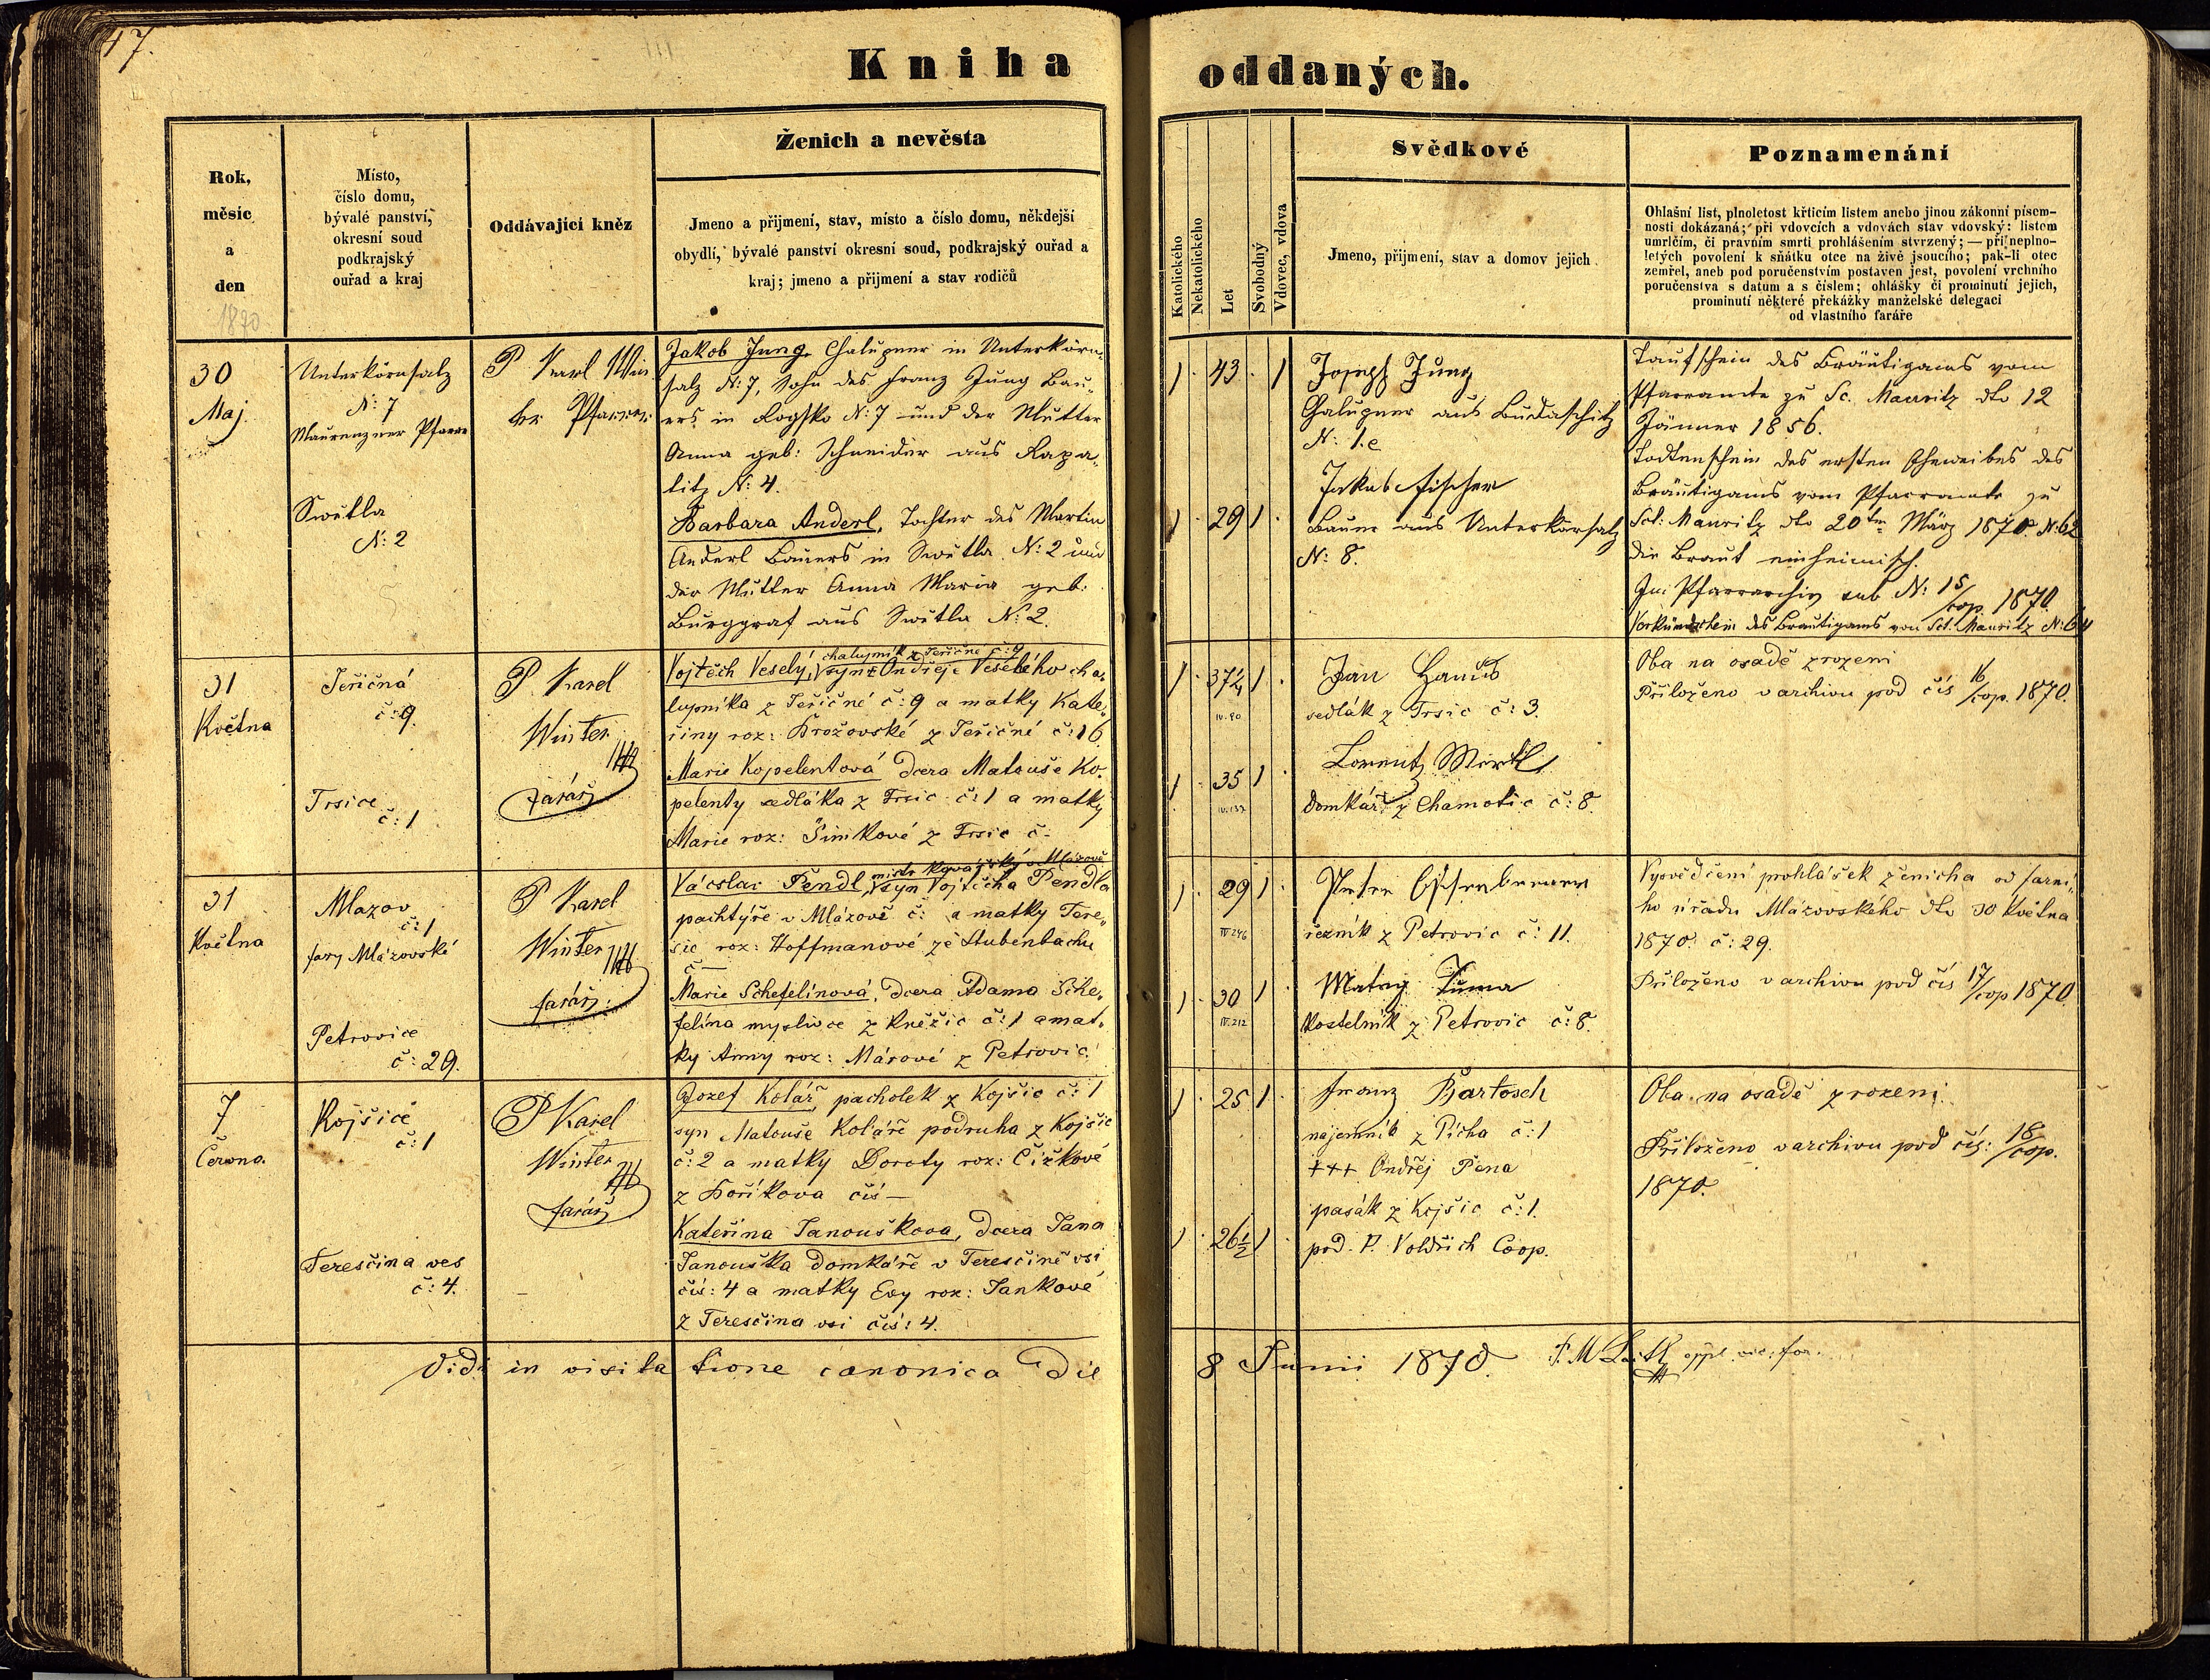 47.
Kniha oddaných.
Rok,
měsíc
a
den
1870
Místo,
číslo domu,
bývalé panství,
okresní soud
podkrajský
ouřad a kraj
Oddávající kněz
Ženich a nevěsta
Jmeno a přijmení, stav, místo a číslo domu, někdejší
obydlí, bývalé panství okresní soud, podkrajský ouřad a
kraj; jmeno a přijmení a stav rodičů
Katolického
Nekatolického
Let
Svobodný
Vdovec, vdova
Svědkové
Jmeno, přijmení, stav a domov jejich
Poznamenání
Ohlašní list, plnoletost křticím listem anebo jinou zákonní písem-
nosti dokázaná; při vdovcích a vdovách stav vdovský: listem
umrlčím, či pravním smrti prohlášením stvrzený; — při neplno-
letých povolení k sňátku otce na živě jsoucího; pak-li otec
zemřel, aneb pod poručenstvím postaven jest, povolení vrchního
poručenstva s datum a s číslem; ohlášky či prominutí jejich,
prominutí některé překážky manželské delegaci
od vlastního faráře
30
Maj.
Unterkörnsalz
N: 7
Maurenzner Pfarre
Swětla
N: 2
P Karl Win
ter Pfarrer
Jakob Jung, Chalupner in Unterkörn-
salz N: 7, Sohn des Franz Jung Bau-
ers in Rogsko N: 7 und der Mutter
Anna geb: Schneider aus Kapa-
titz N: 4.
Barbara Anderl, Tochter des Martin
Anderl Bauers in Swětla N: 2 und
der Mutter Anna Maria geb:
Burggraf aus Swětla N: 2.
1 43 1
1 29 1
Joseph Jung
Chalupner aus Budaschitz
N: 1.e
Jakob Fischer
Bauer aus Unterkörsalz
N: 8.
Taufschein des Bräutigams vom
Pfarramte zu Sc. Mauritz dto 12
Jänner 1856.
Todtenschein des ersten Eheweibes des
Bräutigams vom Pfarramte zu
Sct: Mauritz dto 20ten März 1870. N: 62
die Braut einheimisch.
Im Pfarrarchiv sub N: 15/cop. 1870.
Verkündschein des Bräutigams von Sct. Mauritz N: 64
31
Května
Jeřičná
č: 9.
Trsice
č: 1
P. Karel
Winter
farář
chalupník z Jeřičné č: 9
Vojtěch Veselý, syn Ondřeje Veselého cha-
lupníka z Jeřičné č: 9 a matky Kate-
řiny roz: Brožovské z Jeřičné č: 16.
Marie Kopelentová dcera Matouše Ko-
pelenty sedláka z Trsic č: 1 a matky
Marie roz: Šimkové z Trsic č.
1 37¼ 1
IV. 90
1 35 1
IV. 137
Jan Hanuš
sedlák z Trsic č: 3.
Lorentz
domkář z Chamotic č: 8
Oba na osadě zrozeni
Přiloženo v archivu pod čís 16/cop. 1870.
31
Května
Mlazov
č: 1
fary Mlázovské
Petrovice
č: 29.
P Karel
Winter
farář.
mistr kovářský v Mlázově
Vácslav Pendl, syn Vojtěcha Pendla
pachtýře v Mlázově č: a matky Tere-
sie roz: Hoffmanové ze Stubenbachu
č —
Marie Schefelínová, dcera Adama Sche-
felína myslivce z Kněžic č: 1 a mat-
ky Anny roz: Márové z Petrovic.
1 29 1
IV. 246
1 30 1
IV. 212
řezník z Petrovic č: 11.
Matěj Tuma
kostelník z Petrovic č: 8.
Vysvědčení prohlášek ženicha od farní-
ho úřadu Mlázovského dto 30 Května
1870. č: 29.
Přiloženo v archivu pod čís 17/cop 1870.
7
Června.
Kojšice
č: 1
Teresčina ves
č: 4.
P Karel
Winter
farář
Jozef Kolář, pacholek z Kojšic č: 1
syn Matouše Koláře podruha z Kojšic
č: 2 a matky Doroty roz: Čížkové
z Hoříkova čís —
Kateřina Janouškova, dcera Jana
Janouška domkáře v Teresčině vsi
čís: 4 a matky Evy roz: Jankové
z Teresčina vsi čís: 4.
1 25 1
1 26½ 1
Franz Bartosch
najemník z Picha č: 1
+++ Ondřej Pena
pasák z Kojšic č: 1.
pod. P. Voldřich Coop.
Oba na osadě zrozeni.
Přiloženo v archivu pod čís: 18/cop.
1870.
Vidi in visitatione canonica die 8 Junii 1870.